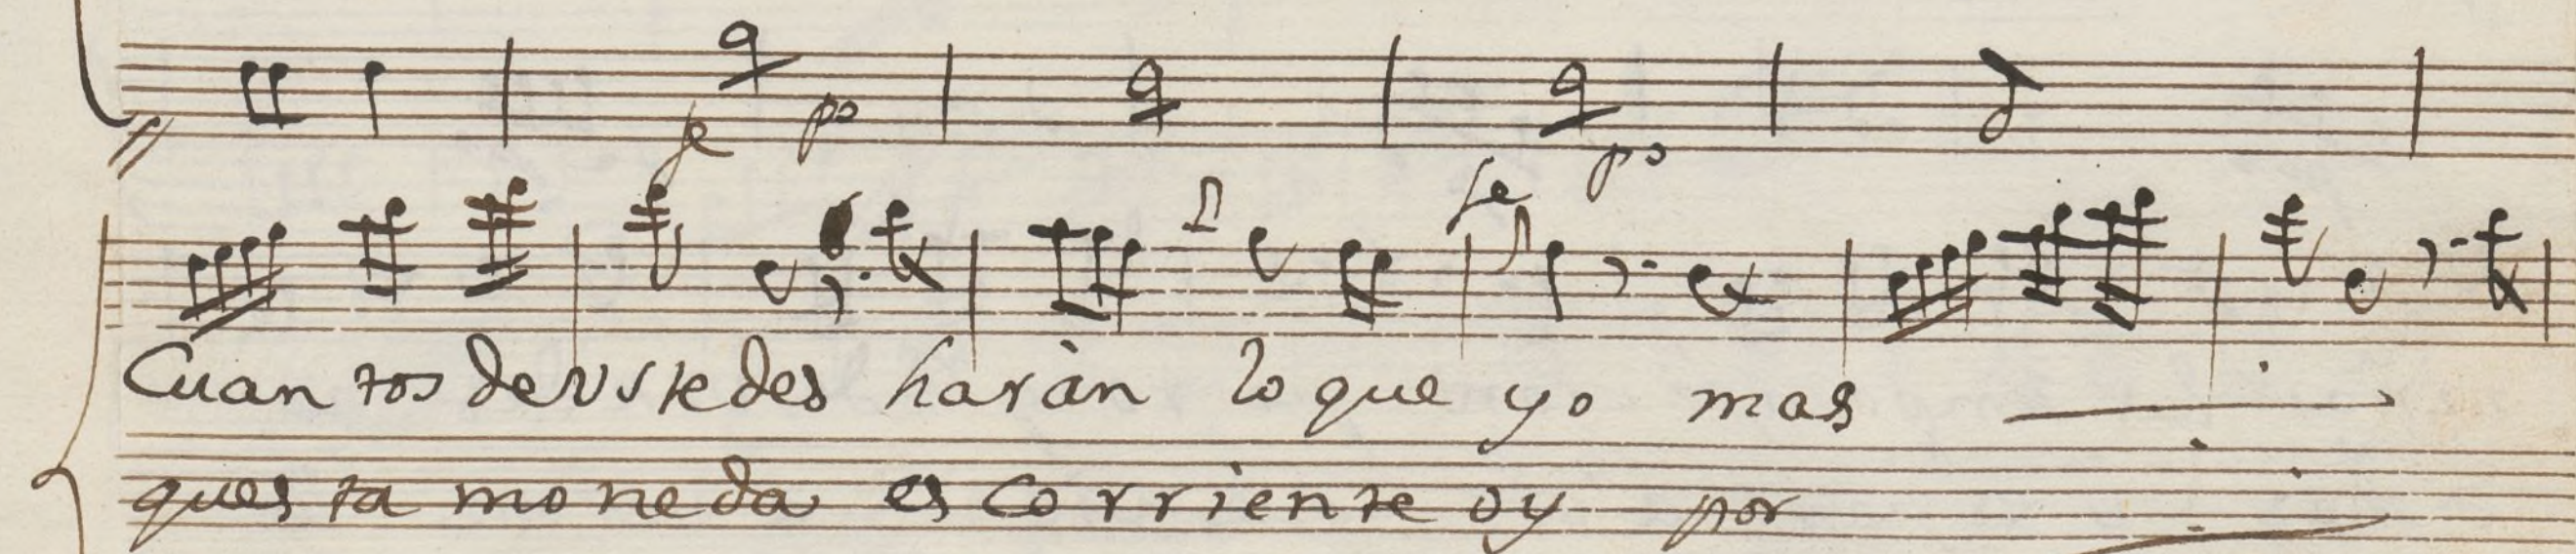 fe po fe po
Cuan tos de vs te des haràn lo que yo mas
ques ta mo ne da es Co rriente oy por